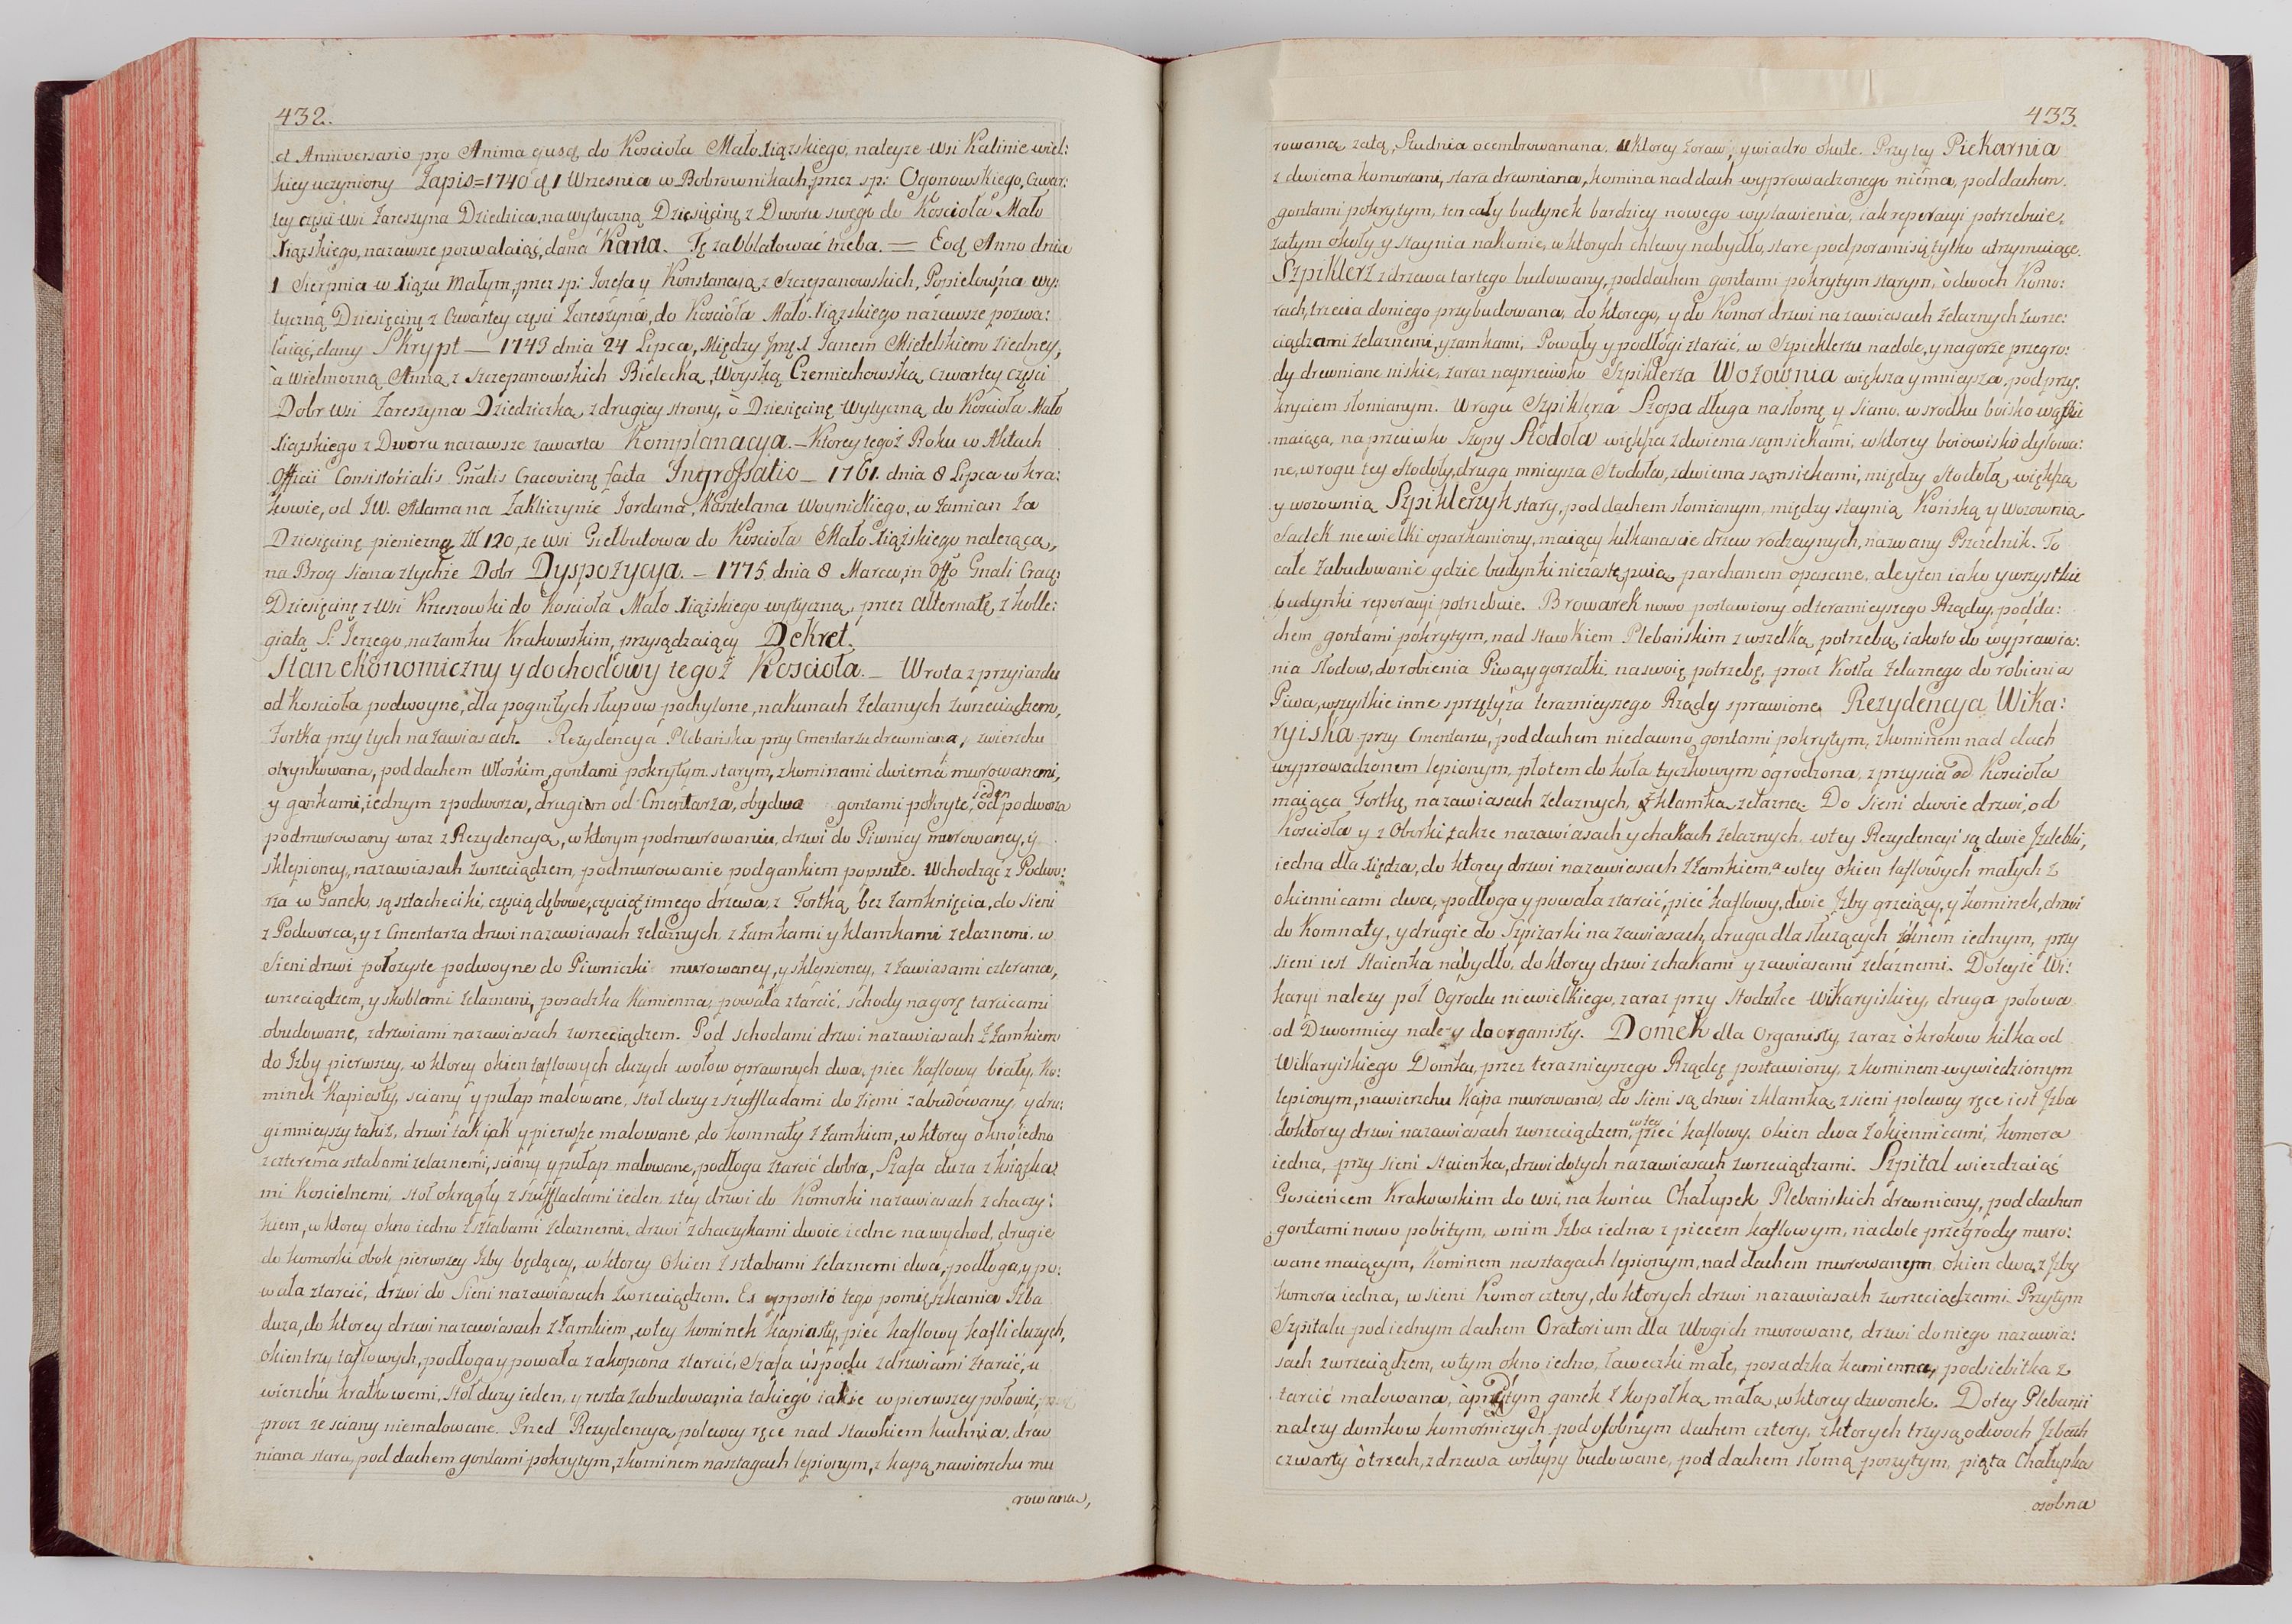 432.
et Anniversario pro Anima ejusq do Kosciola Mało Xiązskiego, należye wsi Kalinie wiel:
kiey uczyniony Zapis=1740 d 1 Wrzesnia w Bobrownikach, przez sp: Ogonowskiego, Czwar:
tey częsci wsi Zareszyna Dziedzica, na wytyczną Dziesięcinę z Dworu swego do Koscioła Mało
Xiązskiego, nazawsze pozwalaiąć, dana Karta. Tę zaoblatować trzeba. = Eoq Anno dnia
1 Sierpnia w Xiązu Małym, przez sp: Jozefa y Konstancyą z Szczepanowskich, Popielow, na wy:
tyczną Dziesięcinę z Czwartey częsci Zareszyna, do Koscioła Mało Xiązskiego nazawsze pozwa:
laiąć, dany Skrypt — 1743 dnia 24 Lipca, Między Jmę X Janem Mieletskiem z iedney,
à Wielmozną Anną z Szczepanowskich Bielecką, Woyską Czerniechowską czwartey częsci
Dobr wsi Zareszyna Dziedziczką, z drugiey strony, ò Dziesięcinę wytyczną do Koscioła Mało
Xiązskiego z Dworu nazawsze zawarta Komplanacya. — Ktorey tegoż Roku w Aktach
Officii Consistorialis Gñalis Cracovieñ facta Ingrossatio — 1761. dnia 8 Lipca w Kra:
kowie, od JW. Adama na Zakliczynie Jordana, Kasztelana Woynickiego, w Zamian Za
Dziesięcinę pieniezną Złł 120, ze wsi Giełbułtowa do Koscioła Mało Xiązskiego nalezącą,
na Brog Siana z tychże Dobr Dyspozycya. — 1775 dnia 8 Marca, in Offo Gnali Crac:
Dziesięcinę z wsi Krzeszowki do Koscioła Mało Xiązskiego wytyczną, przez alternatę, z kolle:
giatą S. Jerzego, na Zamku Krakowskim, przysądzaiący Dekret.
Stan ekonomiczny y dochodowy tegoż Koscioła. — Wrota z przyiazdu
od Koscioła podwoyne, dla pogniłych słupow pochylone, na kunach żelaznych z wrzeciązkiem,
Fortka przy tych na zawiasach. Rezydencya Plebańska przy Cmentarzu drewniana, zwierzchu
otrynkowana, pod dachem Włoskim, gontami pokrytym starym, z kominami dwiema murowanemi,
y gankami, iednym z podworza, drugim od Cmentarza, obydwa gontami pokryte, ieden od podworza
podmurowany wraz z Rezydencyą, w ktorym podmurowaniu, drzwi do Piwnicy murowaney, y
sklepioney, na zawiasach z wrzeciądzem, podmurowanie pod gankiem popsute. Wchodząć z Podwo:
rza w Ganek, są sztacheciki, częscią dębowe, częscią z innego drzewa, z Fortką bez zamknięcia, do sieni
z Podworca, y z Cmentarza drzwi na zawiasach żelaznych z zamkami y klamkami żelaznemi. w
Sieni drzwi położyste podwoyne do Piwniczki murowaney, y sklepioney, z zawiasami czterema,
wrzeciądzem, y skoblemi żelaznemi, posadzka Kamienna, powała z tarcić, schody na gorę tarcicami
obudowane, z drzwiami na zawiasach z wrzeciądzem. Pod schodami drzwi na zawiasach z zamkiem
do Izby pierwszey, w ktorey okien taflowych duzych w ołow oprawnych dwa, piec Kaflowy biały, Ko:
minek Kapiasty, sciany y pułap malowane, stoł duzy z szuffladami do ziemi zabudowany, y dru:
gi mnieyszy takiż, drzwi tak iak y pierwsze malowane, do komnaty z zamkiem, w ktorey okno iedno
z czterema sztabami żelaznemi, sciany y pułap malowane, podłoga z tarcić dobra, Szafa duza z książka:
mi Koscielnemi, stoł okrągły z szuffladami ieden z tey drzwi do Komorki na zawiasach z haczy:
kiem, w ktorey okno iedno z sztabami żelaznemi, drzwi z haczykami dwoie, iedne na wychod, drugie
do komorki obok pierwszey Izby będącey, w ktorey Okien z sztabami żelaznemi dwa, podłoga, y po:
wała z tarcić, drzwi do Sieni na zawiasach z wrzeciądzem. Ex opposito tego pomięszkania Izba
duza, do ktorey drzwi na zawiasach z zamkiem, w tey kominek Kapiasty, piec kaflowy kafli duzych,
okien trzy taflowych, podłoga y powała zakopcona z tarcić, Szafa u spodu z drzwiami z tarcić, u
wierzchu kratkowemi, stoł duzy ieden, y reszta zabudowania takiego iakie w pierwszey połowie,
procz ze sciany niemalowane. Przed Rezydencyą po lewey ręce nad stawkiem kuchnia drew
niana stara, pod dachem gontami pokrytym, z kominem na sztagach lepionym, z kapą nawierzchu mu
rowana,
433.
rowaną zatą, Studnia ocembrowanana, w ktorey żoraw, y wiadro okute. Przy tey Piekarnia
z dwiema komorami, stara drewniana, komina nad dach wyprowadzonego niema, pod dachem
gontami pokrytym, ten cały budynek bardziey nowego wystawienia, iak reperacyi potrzebuie.
zatym okoły y staynia na konie, w ktorych chlewy na bydło, stare podporami się tylko utrzymuiące.
Szpiklerz z drzewa tartego budowany, pod dachem gontami pokrytym starym, ò dwoch Komo:
rach, trzecia do niego przybudowana, do ktorego, y do Komor drzwi na zawiasach żelaznych z wrze:
ciądzami żelaznemi, y zamkami, Powały y podłogi z tarcić, w Szpiklerzu na dole, y na gorze przegro:
dy drewniane niskie, zaraz naprzeciwko Szpiklerza Wozownia większa y mnieysza, pod przy:
kryciem słomianym. W rogu Szpiklerza Szopa długa na słomę y Siano, w srodku boisko wąskie
maiąca, na przeciwko szopy Stodoła większa z dwiema sąmsiekami, w ktorey boiowisko dylowa:
ne, w rogu tey Stodoły, druga mnieysza Stodoła, z dwiema sąmsiekami, między Stodołą większą
y wozownią Szpiklerzyk stary, pod dachem słomianym, między staynią Końską y Wozownią
Sadek niewielki oparkaniony, maiący kilkanascie drzew rodzaynych, nazwany Pszczelnik. To
całe Zabudowanie gdzie budynki niezastępuią, parchanem opasane, ale y ten iako y wszystkie
budynki reperacyi potrzebuie. Browarek nowo postawiony od teraznieyszego Rządcy, pod da:
chem gontami pokrytym, nad stawkiem Plebańskim z wszelką potrzebą, iakoto do wyprawia:
nia słodow, do robienia Piwa, y gorzałki, na swoię potrzebę, procz Kotła żelaznego do robienia
Piwa, wszystkie inne sprzęty za teraznieyszego Rządcy sprawione. Rezydencya Wika:
ryiska przy Cmentarzu, pod dachem niedawno gontami pokrytym, z kominem nad dach
wyprowadzonem lepionym, płotem do koła tyczkowym ogrodzona, z przyscia od Koscioła
maiąca Fortkę, na zawiasach żelaznych, z klamką żelazną. Do Sieni dwoie drzwi, od
Koscioła y z Oborki, także na zawiasach y chakach żelaznych. w tey Rezydencyi są dwie Izdebki,
iedna dla Xiędza, do ktorey drzwi na zawiasach z zamkiem, a w tey okien taflowych małych z
okiennicami dwa, podłoga y powała z tarcić, piec kaflowy, dwie Izby grzeiący, y kominek, drzwi
do Komnaty, y drugie do Szpizarki na zawiasach, druga dla służących z oknem iednym, przy
sieni iest Staienka na bydło, do ktorey drzwi z chakami y zawiasami żelaznemi. Do teyże Wi:
karyi nalezy poł Ogrodu niewielkiego, zaraz przy Stodułce Wikaryiskiey, druga połowa
od Dzwonnicy nalezy do organisty. Domek dla Organisty zaraz ò krokow kilka od
Wikaryiskiego Domku, przez teraznieyszego Rządcę postawiony, z kominem wywiedzionym
lepionym, nawierzchu Kapa murowana, do Sieni są drzwi z klamką, z sieni po lewey ręce iest Izba
do ktorey drzwi na zawiasach z wrzeciądzem, w tey piec kaflowy, okien dwa z okiennicami, komora
iedna, przy sieni Staienka, drzwi do tych na zawiasach z wrzeciądzami. Szpital wiezdzaiąć
Goscieńcem Krakowskim do wsi, na końcu Chałupek Plebańskich drewniany, pod dachem
gontami nowo pobitym, w nim Izba iedna z piecem kaflowym, na dole przegrody muro:
wane maiącym, Kominem na sztagach lepionym, nad dachem murowanym, okien dwa, z Izby
komora iedna, w sieni Komor cztery, do ktorych drzwi na zawiasach z wrzeciądzami. Przy tym
Szpitalu pod iednym dachem Oratorium dla Ubogich murowane, drzwi do niego na zawia:
sach z wrzeciądzem, w tym okno iedno, ławeczki małe, posadzka kamienna, podsiebitka z
tarcić malowana, à przytym ganek z kopółką małą, w ktorey dzwonek. Do tey Plebanii
nalezy domkow komorniczych pod osobnym dachem cztery, z ktorych trzy są o dwoch Izbach
czwarty ò trzech, z drzewa w słupy budowane, pod dachem słomą poszytym, piąta Chałupka
osobna